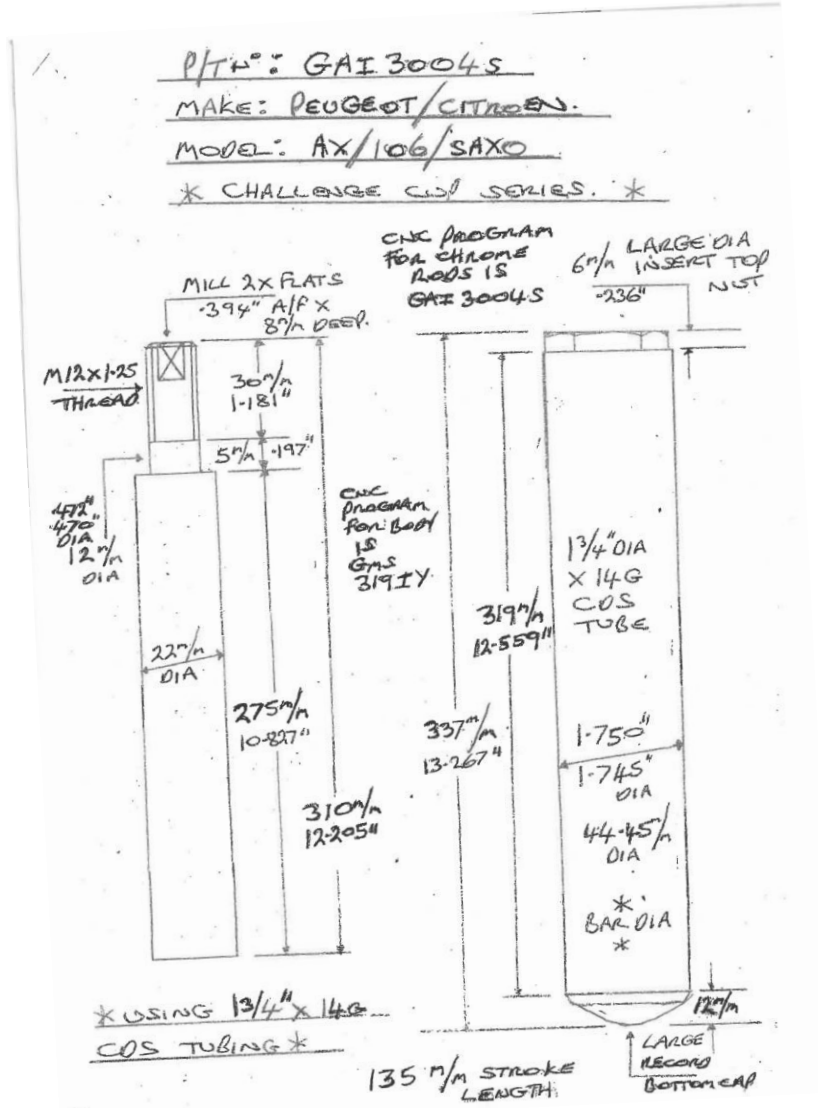 P/T Nº: GAI 3004S
MAKE: PEUGEOT/CITROEN.
MODEL: AX/106/SAXO
* CHALLENGE CUP SERIES. *
CNC PROGRAM
FOR CHROME
RODS IS
GAI 3004S
6m/m LARGE DIA
INSERT TOP
NUT
.236"
MILL 2X FLATS
.394" A/F X
8m/m DEEP.
M12X1.25
THREAD
30m/m
1.181"
5m/m .197"
.472"
.470"
DIA
12m/m
DIA
CNC
PROGRAM
FOR BODY
IS
GMS
319IY
1 3/4" DIA
X 14G
CDS
TUBE
319m/m
12.559"
22m/m
DIA
275m/m
10.827"
337m/m
13.267"
1.750"
1.745"
DIA
310m/m
12.205"
44.45m/m
DIA
*
BAR DIA
*
12m/m
* USING 1 3/4" X 14G
CDS TUBING *
135 m/m STROKE
LENGTH
LARGE
RECORD
BOTTOM CAP